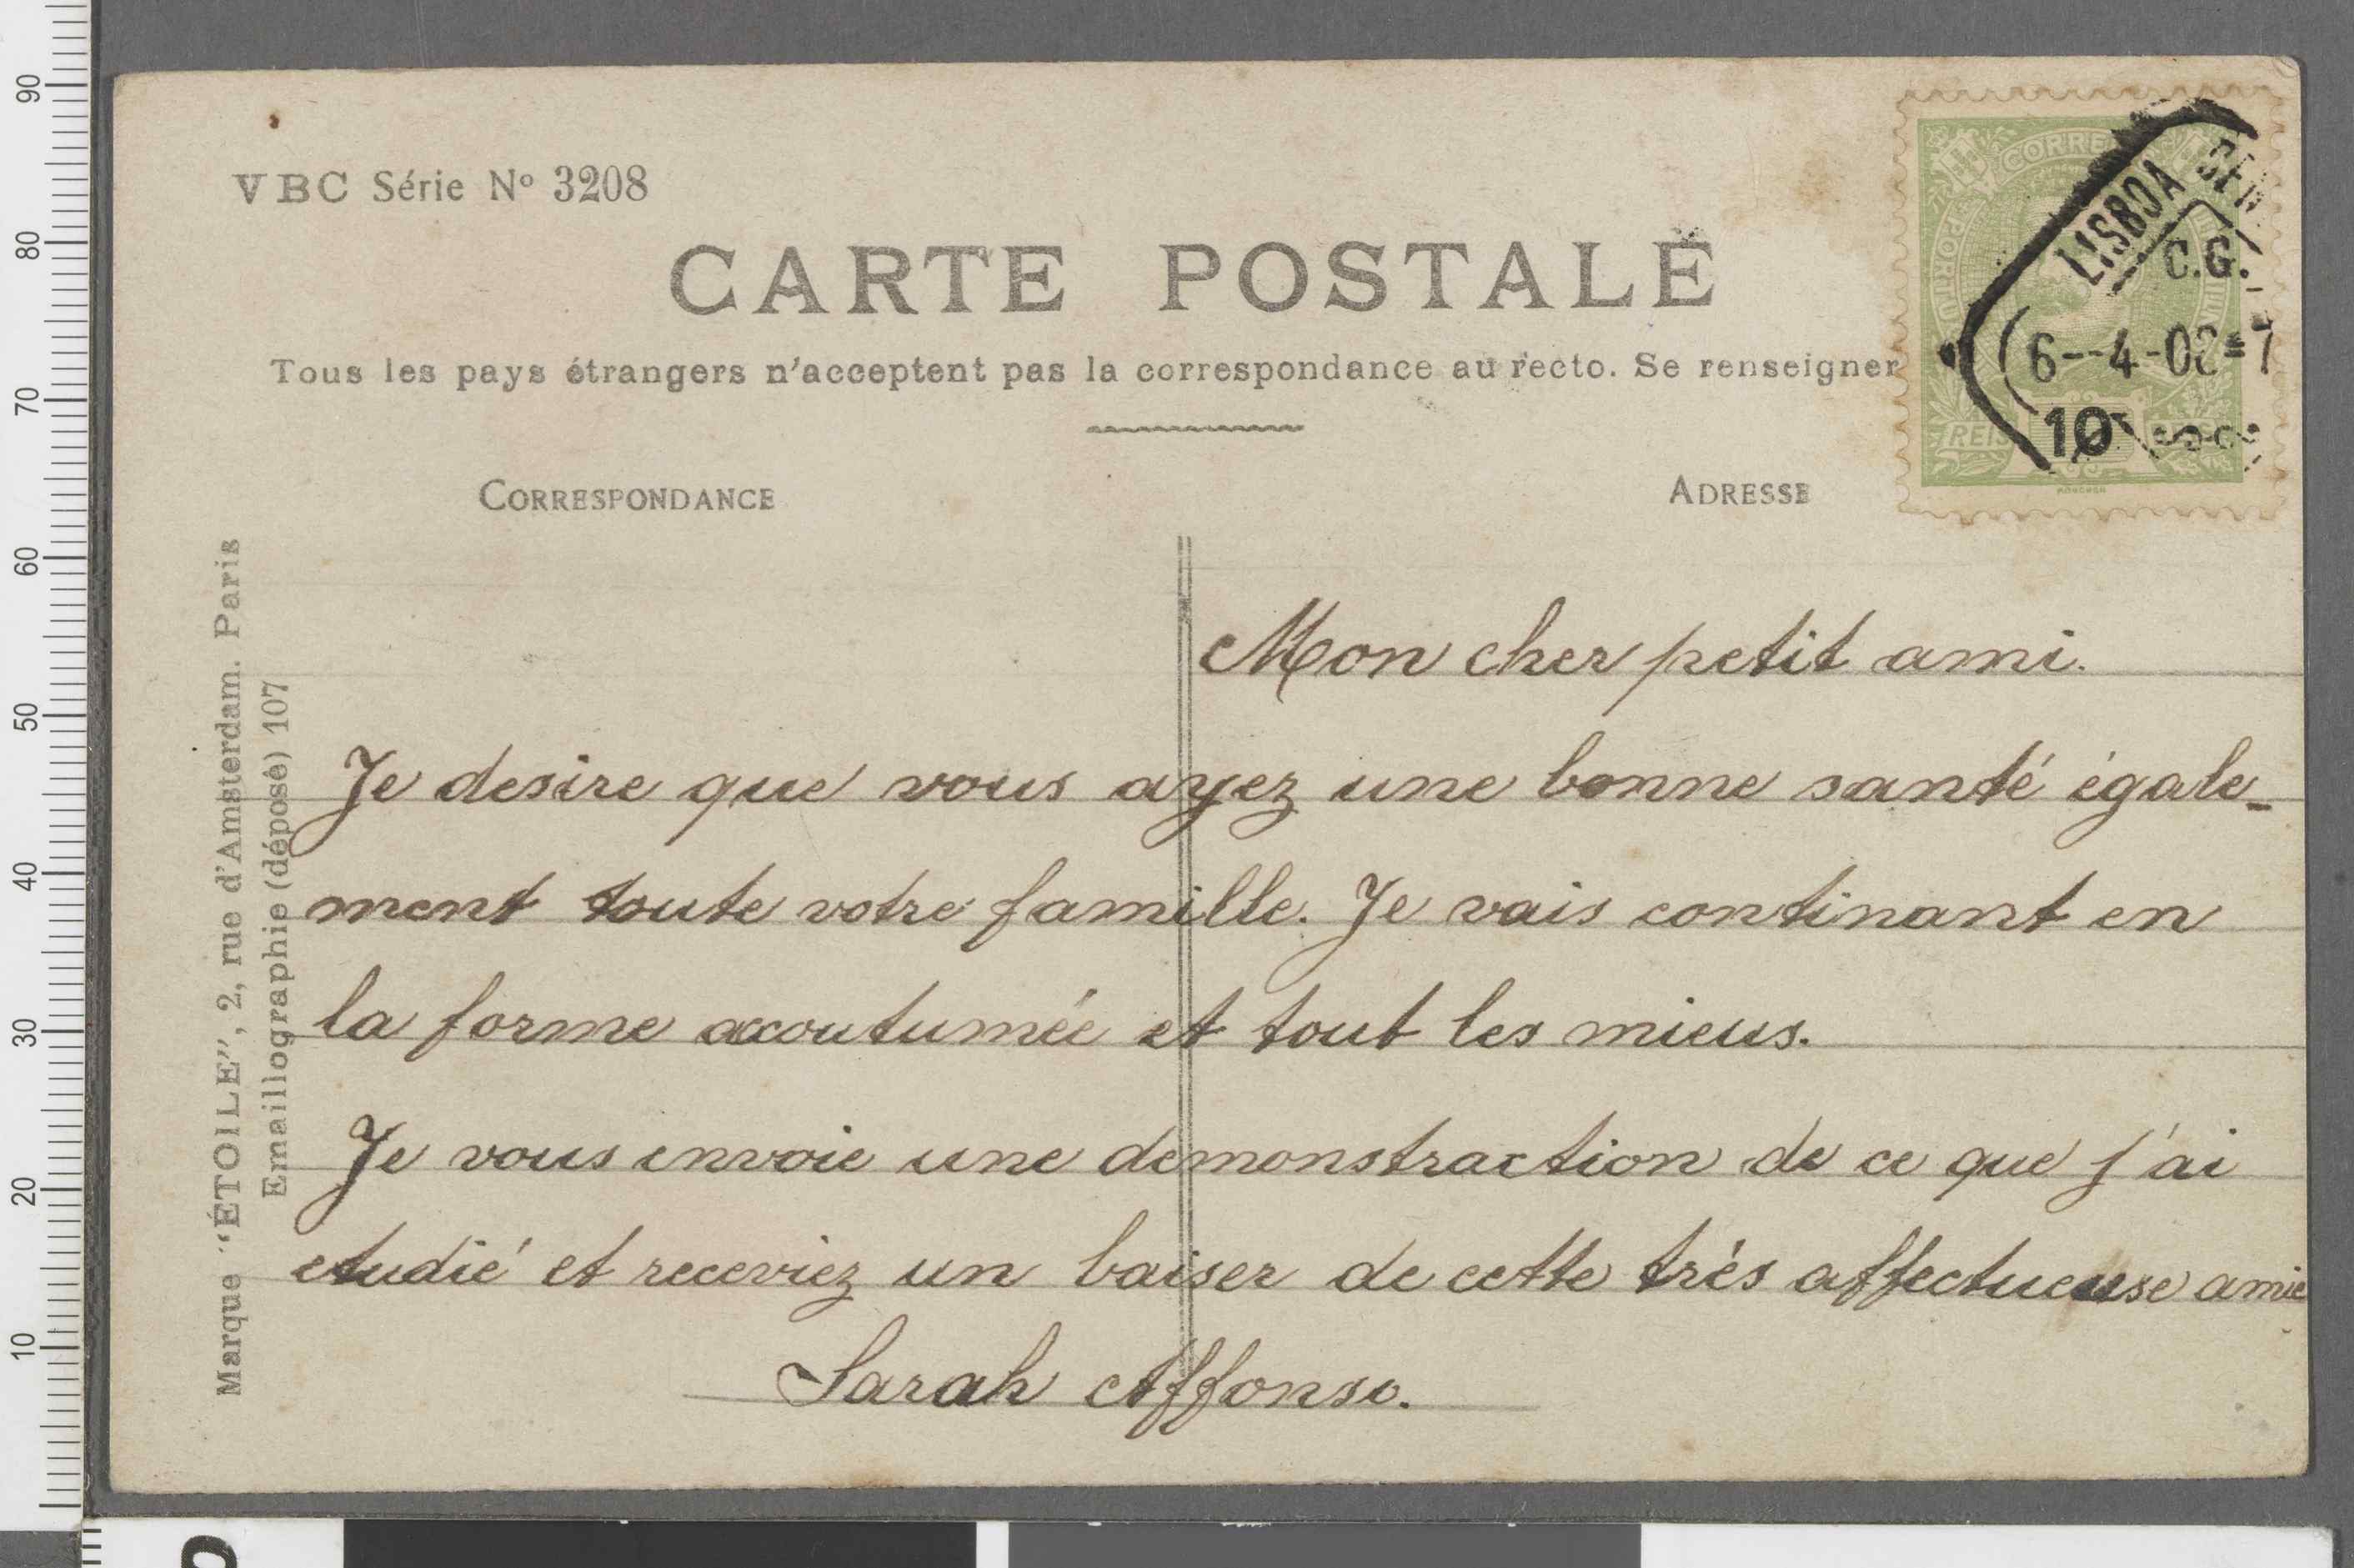 VBC Série Nº 3208
CARTE POSTALE
Tous les pays étrangers n'acceptent pas la correspondance au recto. Se renseigner
CORRESPONDANCE
ADRESSE
CORRE
PORTU
REIS
LISBOA CEN
C.G.
6--4-08=7
10
Mon cher petit ami.
Je desire que vous ayez une bonne santé égale-
ment toute votre famille. Je vais continant en
la forme accoutumée et tout les mieus.
Je vous envoie une demonstraction de ce que j'ai
etudié et receviez un baiser de cette très affectueuse amie
Sarah Affonso.
Marque "ÉTOILE", 2, rue d'Amsterdam. Paris
Emaillographie (déposé) 107
90
80
70
60
50
40
30
20
10